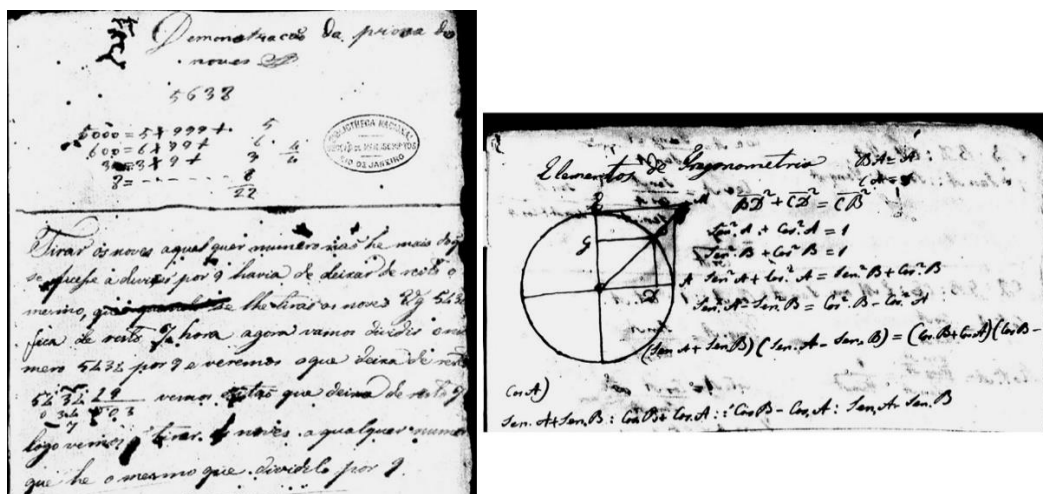 Demonstração da prova do
noves
5638
5000 = 5 x 999 + 5
600 = 6 x 99 + 6
3 = 3 x 9 + 3
8 = - - - - - - 8
22
4
4
BIBLIOTHECA NACIONAL
RIO DE JANEIRO
Tirar os noves a qualquer numero não he mais do q
se a dividir por 9 havia de deixar de resto o
mesmo, se lhe tirar os noves
fica de resto hora agora vamos dividir o nu
mero por 9 e veremos o que deixa de resto
vemos que deixa de resto
logo vemos q tirar os noves a qualquer numero
que he o mesmo que dividilo por 9.
Elementos de Trigonometria
BD² + CD² = CB²
Sen² A + Cos² A = 1
Sen² B + Cos² B = 1
Sen² A + Cos² A = Sen² B + Cos² B
Sen² A - Sen² B = Cos² B - Cos² A
(Sen A + Sen B) (Sen. A - Sen. B) = (Cos. B + Cos A) (Cos B -
Cos A)
Sen. A + Sen. B : Cos. B + Cos. A :: Cos B - Cos. A : Sen. A - Sen. B
G
D
A